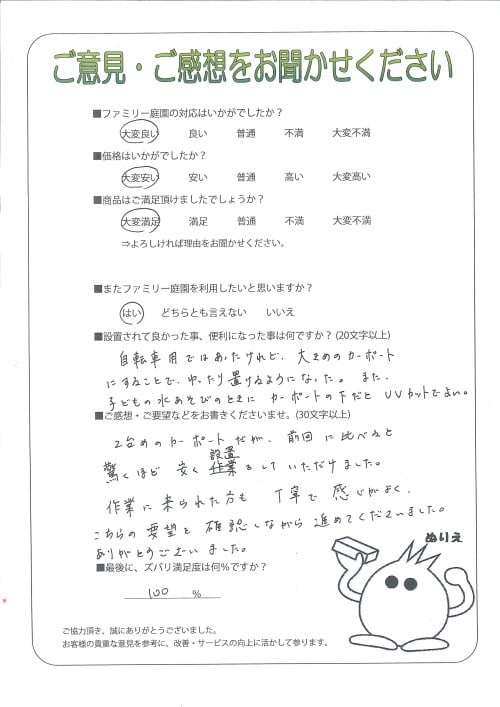 ご意見・ご感想をお聞かせください
■ファミリー庭園の対応はいかがでしたか？
大変良い 良い 普通 不満 大変不満
■価格はいかがでしたか？
大変安い 安い 普通 高い 大変高い
■商品はご満足頂けましたでしょうか？
大変満足 満足 普通 不満 大変不満
⇒よろしければ理由をお聞かせください。
■またファミリー庭園を利用したいと思いますか？
はい どちらとも言えない いいえ
■設置されて良かった事、便利になった事は何ですか？(20文字以上)
自転車用ではあったけれど、大きめのカーポート
にすることで、ゆったり置けるようになった。また、
子どもの水あそびのときに カーポートの下だと UVカットでよい。
■ご感想・ご要望などをお書きくださいませ。(30文字以上)
2台めのカーポートだが、前回に比べると
驚くほど 安く 設置をしていただけました。
作業に来られた方も 丁寧で 感じがよく、
こちらの要望を確認しながら進めてくださいました。
ありがとうございました。
ぬりえ
■最後に、ズバリ満足度は何％ですか？
100 ％
ご協力頂き、誠にありがとうございました。
お客様の貴重な意見を参考に、改善・サービスの向上に活かして参ります。